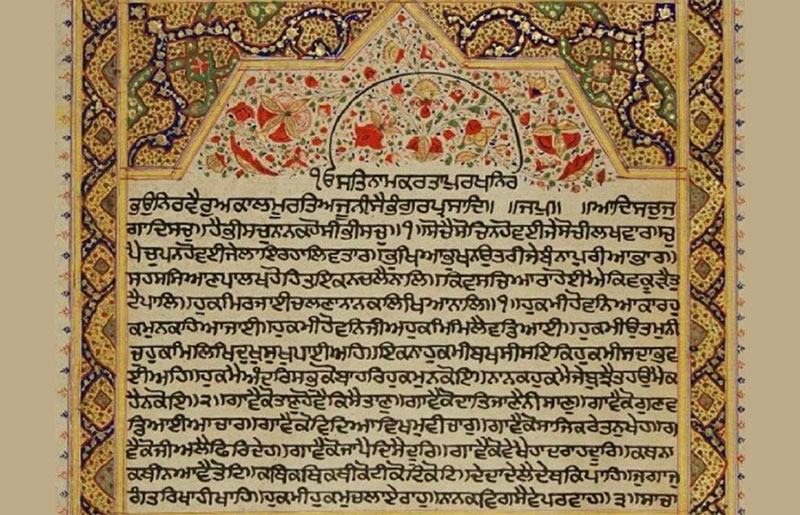 ੴਸਤਿਨਾਮਕਰਤਾਪੁਰਖਨਿਰ
ਭਉਨਿਰਵੈਰੁਅਕਾਲਮੂਰਤਿਅਜੂਨੀਸੈਭੰਗੁਰਪ੍ਰਸਾਦਿ॥ ॥ਜਪੁ॥ ॥ਆਦਿਸਚੁਜੁ
ਗਾਦਿਸਚੁ॥ਹੈਭੀਸਚੁਨਾਨਕਹੋਸੀਭੀਸਚੁ॥੧॥ਸੋਚੈਸੋਚਿਨਹੋਵਈਜੇਸੋਚੀਲਖਵਾਰ॥ਚੁ
ਪੈਚੁਪਨਹੋਵਈਜੇਲਾਇਰਹਾਲਿਵਤਾਰ॥ਭੁਖਿਆਭੁਖਨਉਤਰੀਜੇਬੰਨਾਪੁਰੀਆਭਾਰ॥
ਸਹਸਸਿਆਣਪਾਲਖਹੋਹਿਤਇਕਨਚਲੈਨਾਲਿ॥ਕਿਵਸਚਿਆਰਾਹੋਈਐਕਿਵਕੂੜੈਤੁ
ਟੈਪਾਲਿ॥ਹੁਕਮਿਰਜਾਈਚਲਣਾਨਾਨਕਲਿਖਿਆਨਾਲਿ॥੧॥ਹੁਕਮੀਹੋਵਨਿਆਕਾਰਹੁ
ਕਮੁਨਕਹਿਆਜਾਈ॥ਹੁਕਮੀਹੋਵਨਿਜੀਅਹੁਕਮਿਮਿਲੈਵਡਿਆਈ॥ਹੁਕਮੀਉਤਮੁਨੀ
ਚੁਹੁਕਮਿਲਿਖਿਦੁਖਸੁਖਪਾਈਅਹਿ॥ਇਕਨਾਹੁਕਮੀਬਖਸੀਸਇਕਿਹੁਕਮੀਸਦਾਭਵ
ਈਅਹਿ॥ਹੁਕਮੈਅੰਦਰਿਸਭੁਕੋਬਾਹਰਿਹੁਕਮੁਨਕੋਇ॥ਨਾਨਕਹੁਕਮੈਜੇਬੁਝੈਤਹਉਮੈਕ
ਹੈਨਕੋਇ॥੨॥ਗਾਵੈਕੋਤਾਣੁਹੋਵੈਕਿਸੈਤਾਣੁ॥ਗਾਵੈਕੋਦਾਤਿਜਾਣੈਨੀਸਾਣੁ॥ਗਾਵੈਕੋਗੁਣਵ
ਡਿਆਈਆਚਾਰ॥ਗਾਵੈਕੋਵਿਦਿਆਵਿਖਮੁਵੀਚਾਰੁ॥ਗਾਵੈਕੋਸਾਜਿਕਰੇਤਨੁਖੇਹ॥ਗਾ
ਵੈਕੋਜੀਅਲੈਫਿਰਿਦੇਹ॥ਗਾਵੈਕੋਜਾਪੈਦਿਸੈਦੂਰਿ॥ਗਾਵੈਕੋਵੇਖੈਹਾਦਰਾਹਦੂਰਿ॥ਕਥਨਾ
ਕਥੀਨਆਵੈਤੋਟਿ॥ਕਥਿਕਥਿਕਥੀਕੋਟੀਕੋਟਿਕੋਟਿ॥ਦੇਦਾਦੇਲੈਦੇਥਕਿਪਾਹਿ॥ਜੁਗਾਜੁ
ਗੰਤਰਿਖਾਹੀਖਾਹਿ॥ਹੁਕਮੀਹੁਕਮੁਚਲਾਏਰਾਹੁ॥ਨਾਨਕਵਿਗਸੈਵੇਪਰਵਾਹੁ॥੩॥ਸਾਚਾ